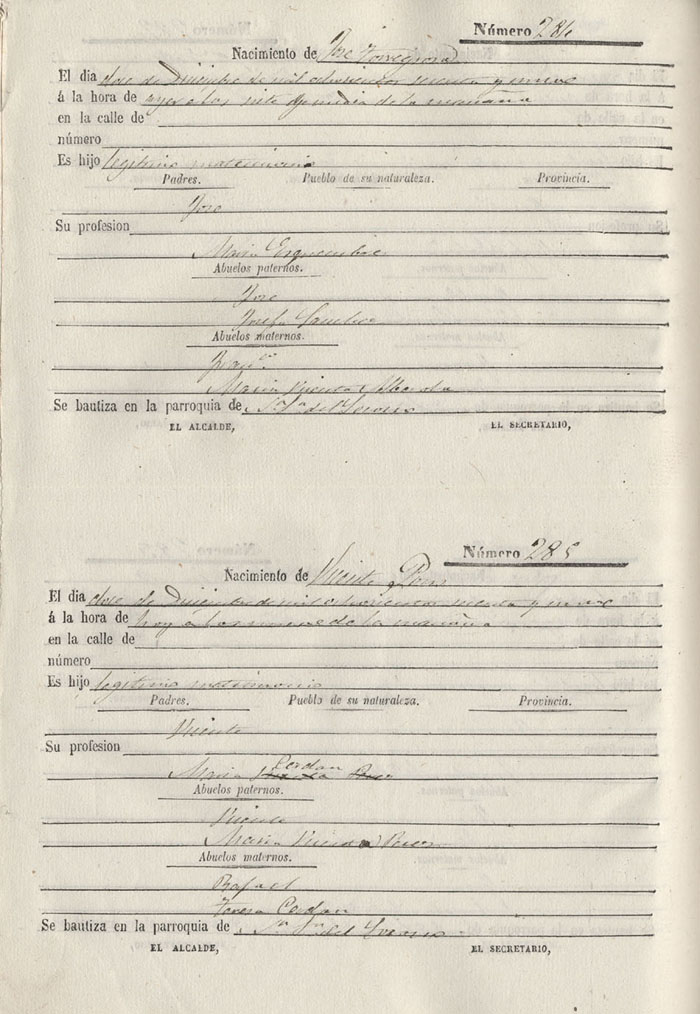 Número 284
Nacimiento de Jose Torregrosa
El dia dose de Diciembre de mil ochocientos secenta y nueve
á la hora de ayer a las siete y media de la mañana
en la calle de
número
Es hijo legitimo matrimonio
Padres. Pueblo de su naturaleza. Provincia.
Jose
Su profesion
Maria Esquembre
Abuelos paternos.
Jose
Josefa Sanchez
Abuelos maternos.
Franco
Maria Vicenta Alberola
Se bautiza en la parroquia de
EL ALCALDE, EL SECRETARIO,
Número 285
Nacimiento de Vicente
El dia dose de Diciembre de mil ochocientos secenta y nueve
á la hora de hoy a las nueve de la mañana
en la calle de
número
Es hijo legitimo matrimonio
Padres. Pueblo de su naturaleza. Provincia.
Vicente
Su profesion
Maria Cerdan
Abuelos paternos.
Vicente
Maria
Abuelos maternos.
Rafael
Teresa Cerdan
Se bautiza en la parroquia de
EL ALCALDE, EL SECRETARIO,